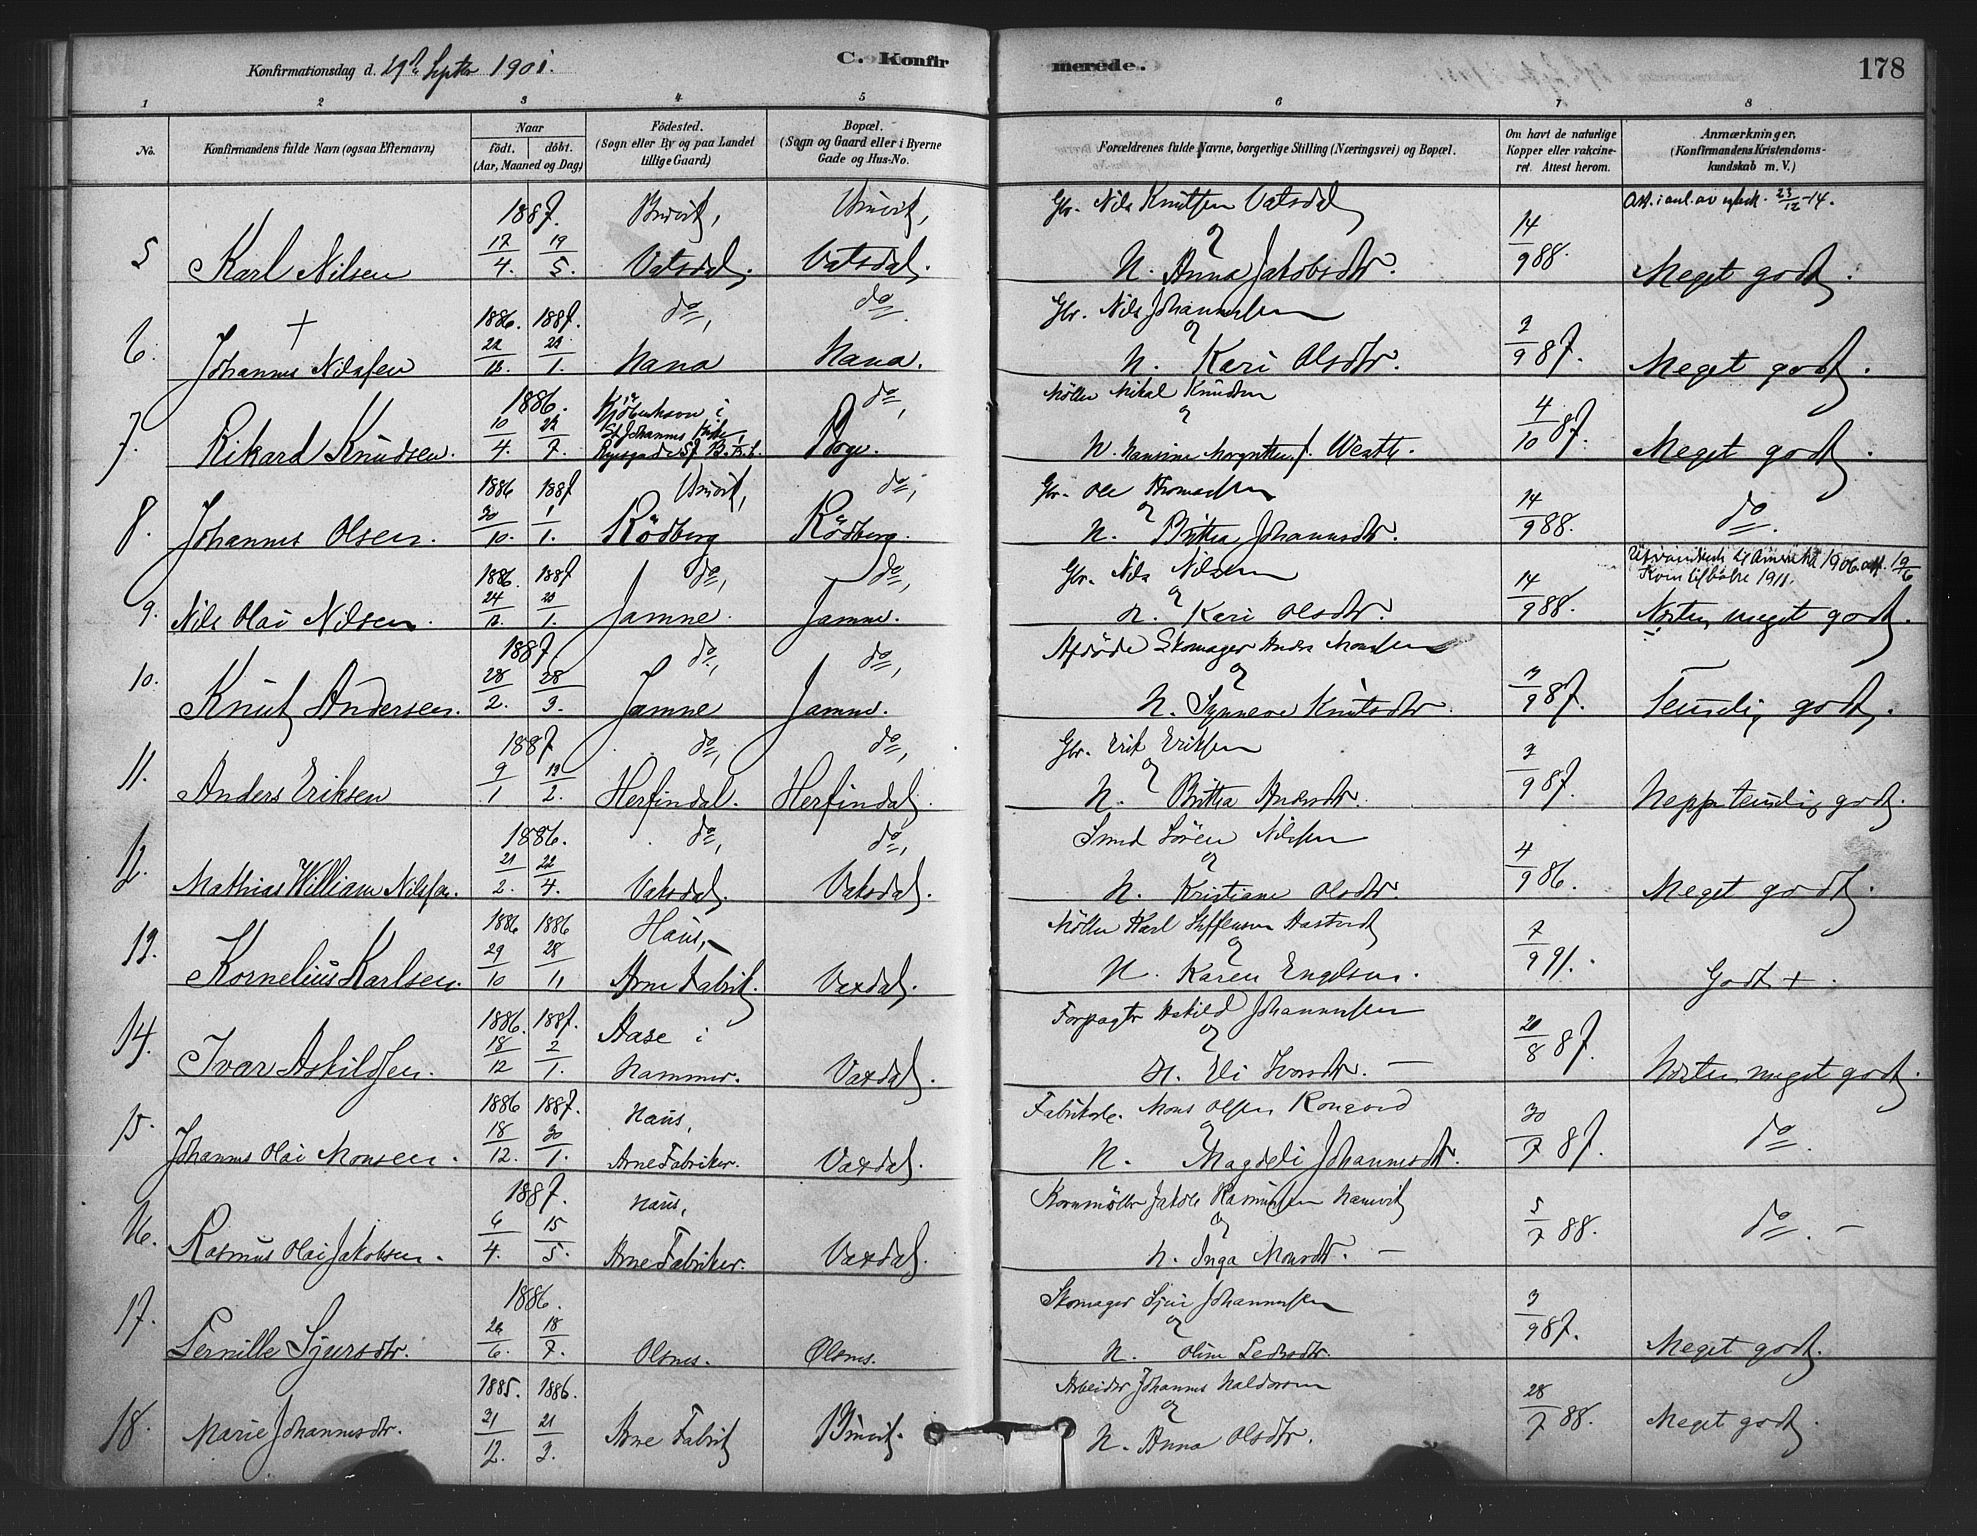 Konfirmationsdag d. 29de Septbr 1901.
C. Konfirmerede.
178
1 2 3 4 5 6 7 8
No.
Konfirmandens fulde Navn (ogsaa Efternavn)
Naar
födt. döbt.
(Aar, Maaned og Dag)
Födested.
(Sogn eller By og paa Landet
tillige Gaard)
Bopæl.
(Sogn og Gaard eller i Byerne
Gade og Hus-No.
Forældrenes fulde Navne, borgerlige Stilling (Næringsvei) og Bopæl.
Om havt de naturlige
Kopper eller vakcine-
ret. Attest herom.
Anmærkninger,
(Konfirmandens Kristendoms-
kundskab m. V.)
1887. Bruvik, Bruvik, Gbr. Nils Knutsen Vatsdal
5 Karl Nilsen 17/4. 19/5. Vatsdal. Vatsdal. og H. Anna Jakobsdtr. 14/9 88. Meget godt.
+ 1886. 1887. do, do. Gbr. Nils Johannessen
6. Johannes Nilssen 22/12. 22/1. Nana Nana. og H. Kari Olsdtr. 3/9 87. Meget godt.
1886. Kjöbenhavn i do, Möller Mikal Knudsen
7. Rikard Knudsen. 10/4. 22/7. Boge. og H. Nansine f. 4/10 87. Meget godt.
1886 1887 Bruvik, do, Gbr. Ole Thomassen
8. Johannes Olsen. 30/10. 1/1. Rödberg Rödberg. og H. Britha Johannesdtr. 14/9 88. do.
1886. 1887 do, do, Gbr. Nils Nilsen 1906 att. 19/6
Kom tilbake 1911.
9. Nils Olai Nilsen. 24/12. 23/1. Jamne. Jamne. og H. Kari Olsdtr. 14/9 88. Næsten meget godt.
1887. do, do, Afdöde Skomager Anders Monsen
10. Knut Andersen. 28/2. 28/3. Jamne Jamne. og H. Synneve Knutsdtr. 3/9 87. Temelig godt.
1887 do, do, Gbr. Erik Eriksen
11. Anders Eriksen 9/1 13/2. Herfindal. Herfindal. og H. Britha Andersdtr. 3/9 87. Neppe temelig godt.
1886. do, do, Smed Sören Nilssen
12. Mathias William Nilssen. 21/2. 22/4. Vatsdal. Vaksdal. og H. Kristiane Olsdtr. 4/9 86. Meget godt.
1886 1886 Haus, Möller Karl Steffensen
13. Kornelius Karlsen. 29/10 28/11 Arne Fabrik. Vaxdal. og H. Karen Engelsen. 7/9 91. Godt +.
1886. 1887. Aase i Forpagter Askild Johannessen
14. Ivar Askildsen. 18/12 2/1. Hammer. Vaxdal. og H. Eli Ivarsdtr. — 20/8 87. Næsten meget godt.
1886 1887. Haus, Fabrikarb. Mons Olsen
15. Johannes Olai Monsen. 18/12. 30/1. Arne Fabriker. Vaxdal. og H. Magdeli Johannesdtr. 30/7 87. do.
1887. Haus, Kornmöller Jakob Rasmussen
16. Rasmus Olai Jakobsen. 6/4. 15/5. Arne Fabriker. Vaxdal. og H. Inga Monsdtr. — 5/7 88. do. —
1886. Skomager Sjur Johannessen
17. Pernille Sjursdtr. 26/6. 18/7. Olsnes. Olsnes. og H. Oline Pedersdtr. 3/9 87. Meget godt.
1885. 1886. Arbeider Johannes Haldorsen
18. Marie Johannesdtr. 31/12. 21/3. Arne Fabrik Bruvik. og H. Anna Olsdtr. 28/7 88. Meget godt.